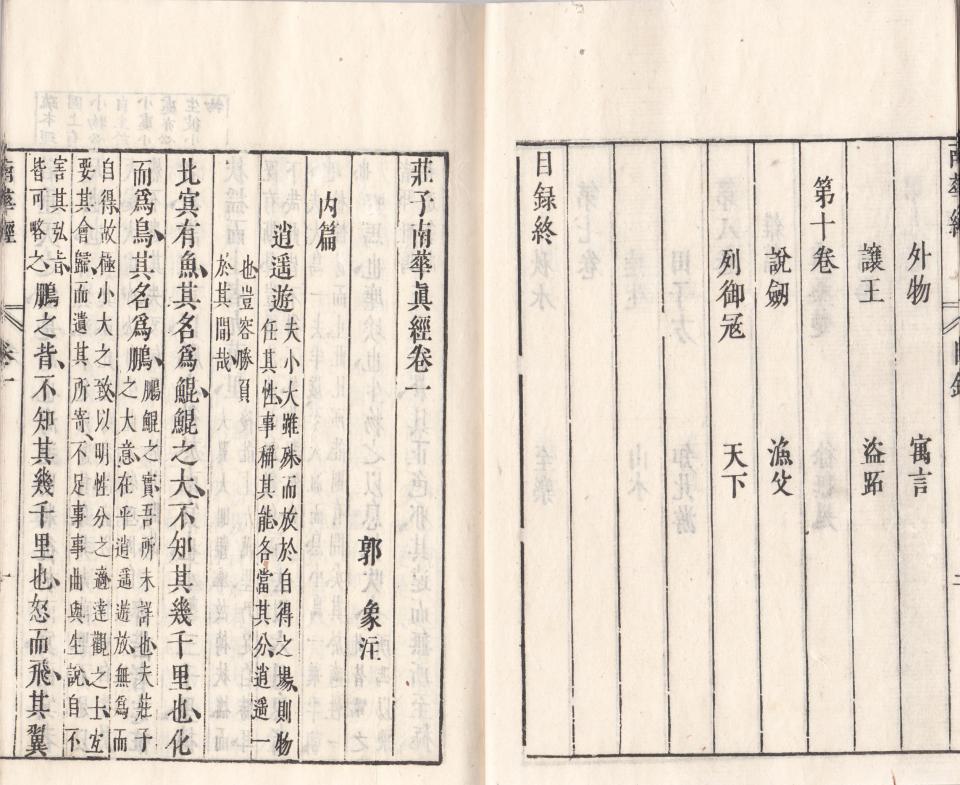 外物 寓言
讓王 盜跖
第十卷
說劒 漁父
列御寇 天下
目録終
莊子南華眞經卷一
郭象注
内篇
逍遥遊
夫小大雖殊而放於自得之塲則物
任其性事稱其能各當其分逍遥一
也豈容勝負
於其間哉
北冥有魚其名爲鯤鯤之大不知其幾千里也化
而爲鳥其名爲鵬
鵬鯤之實吾所未詳也夫莊子
之大意在乎逍遥遊放無爲而
自得故極小大之致以明性分之適達觀之士宜
要其會歸而遺其所寄不足事事曲與生說自不
害其弘旨
皆可略之
鵬之背不知其幾千里也怒而飛其翼
南華經
卷一